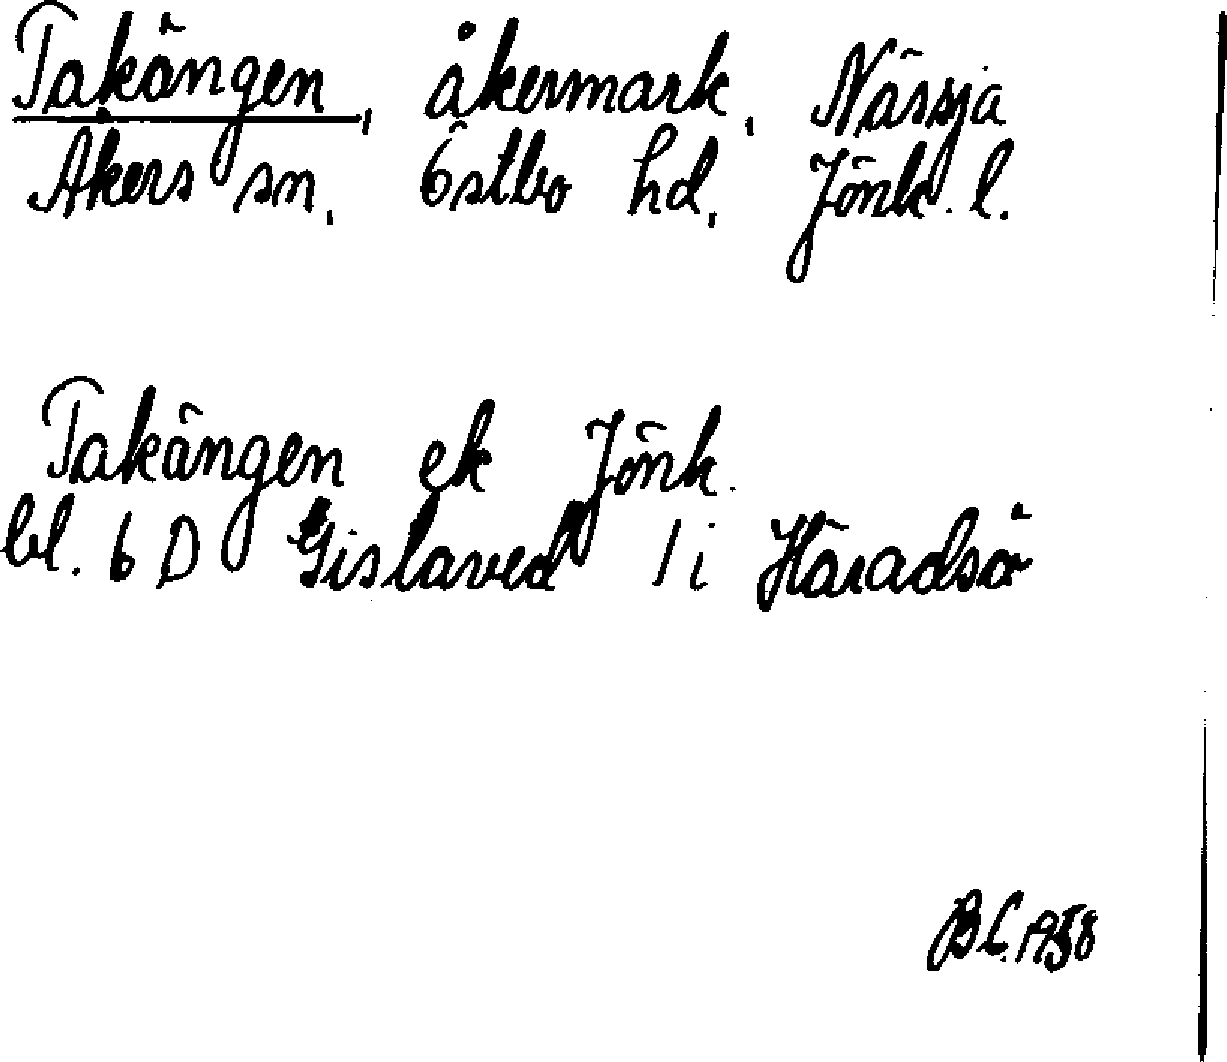 Takängen, åkermark, Nässja
Åkers sn, Östbo hd, Jönk. l.
Takängen ek Jönk.
bl. 6 D Gislaved 1 i Häradsö
B.L. 1958